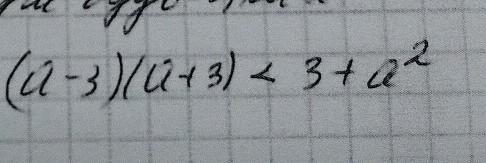 (a-3)(a+3) < 3 + a²